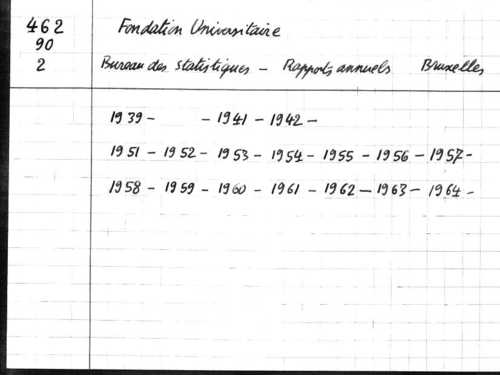 462 Fondation Universitaire
90
2 Bureau des statistiques - Rapports annuels Bruxelles
1939 - - 1941 - 1942 -
1951 - 1952 - 1953 - 1954 - 1955 - 1956 - 1957 -
1958 - 1959 - 1960 - 1961 - 1962 - 1963 - 1964 -